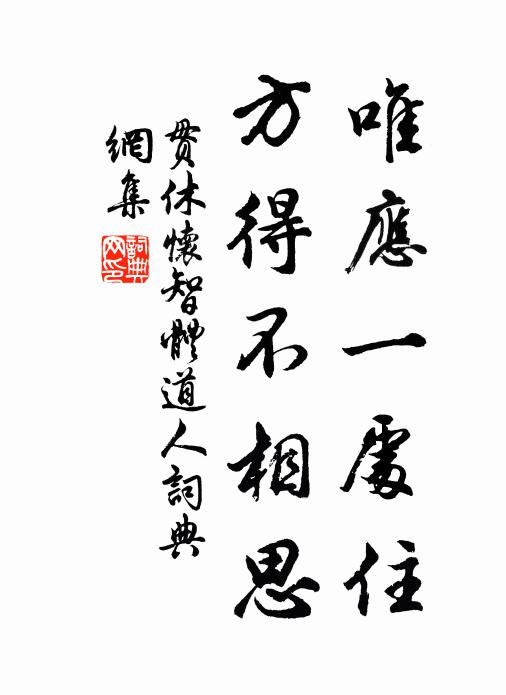 唯應一處住
方得不相思
貫休懷智體道人詞典
網集
詞典
网印